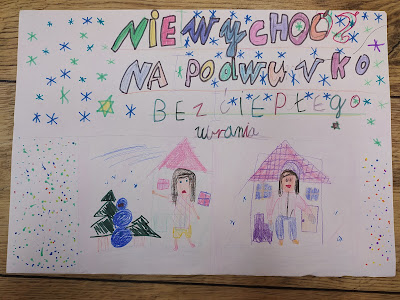 NIE WYCHOĆŹ
NA PODWUVKO
BEZ CIEPŁEGO
ubrania